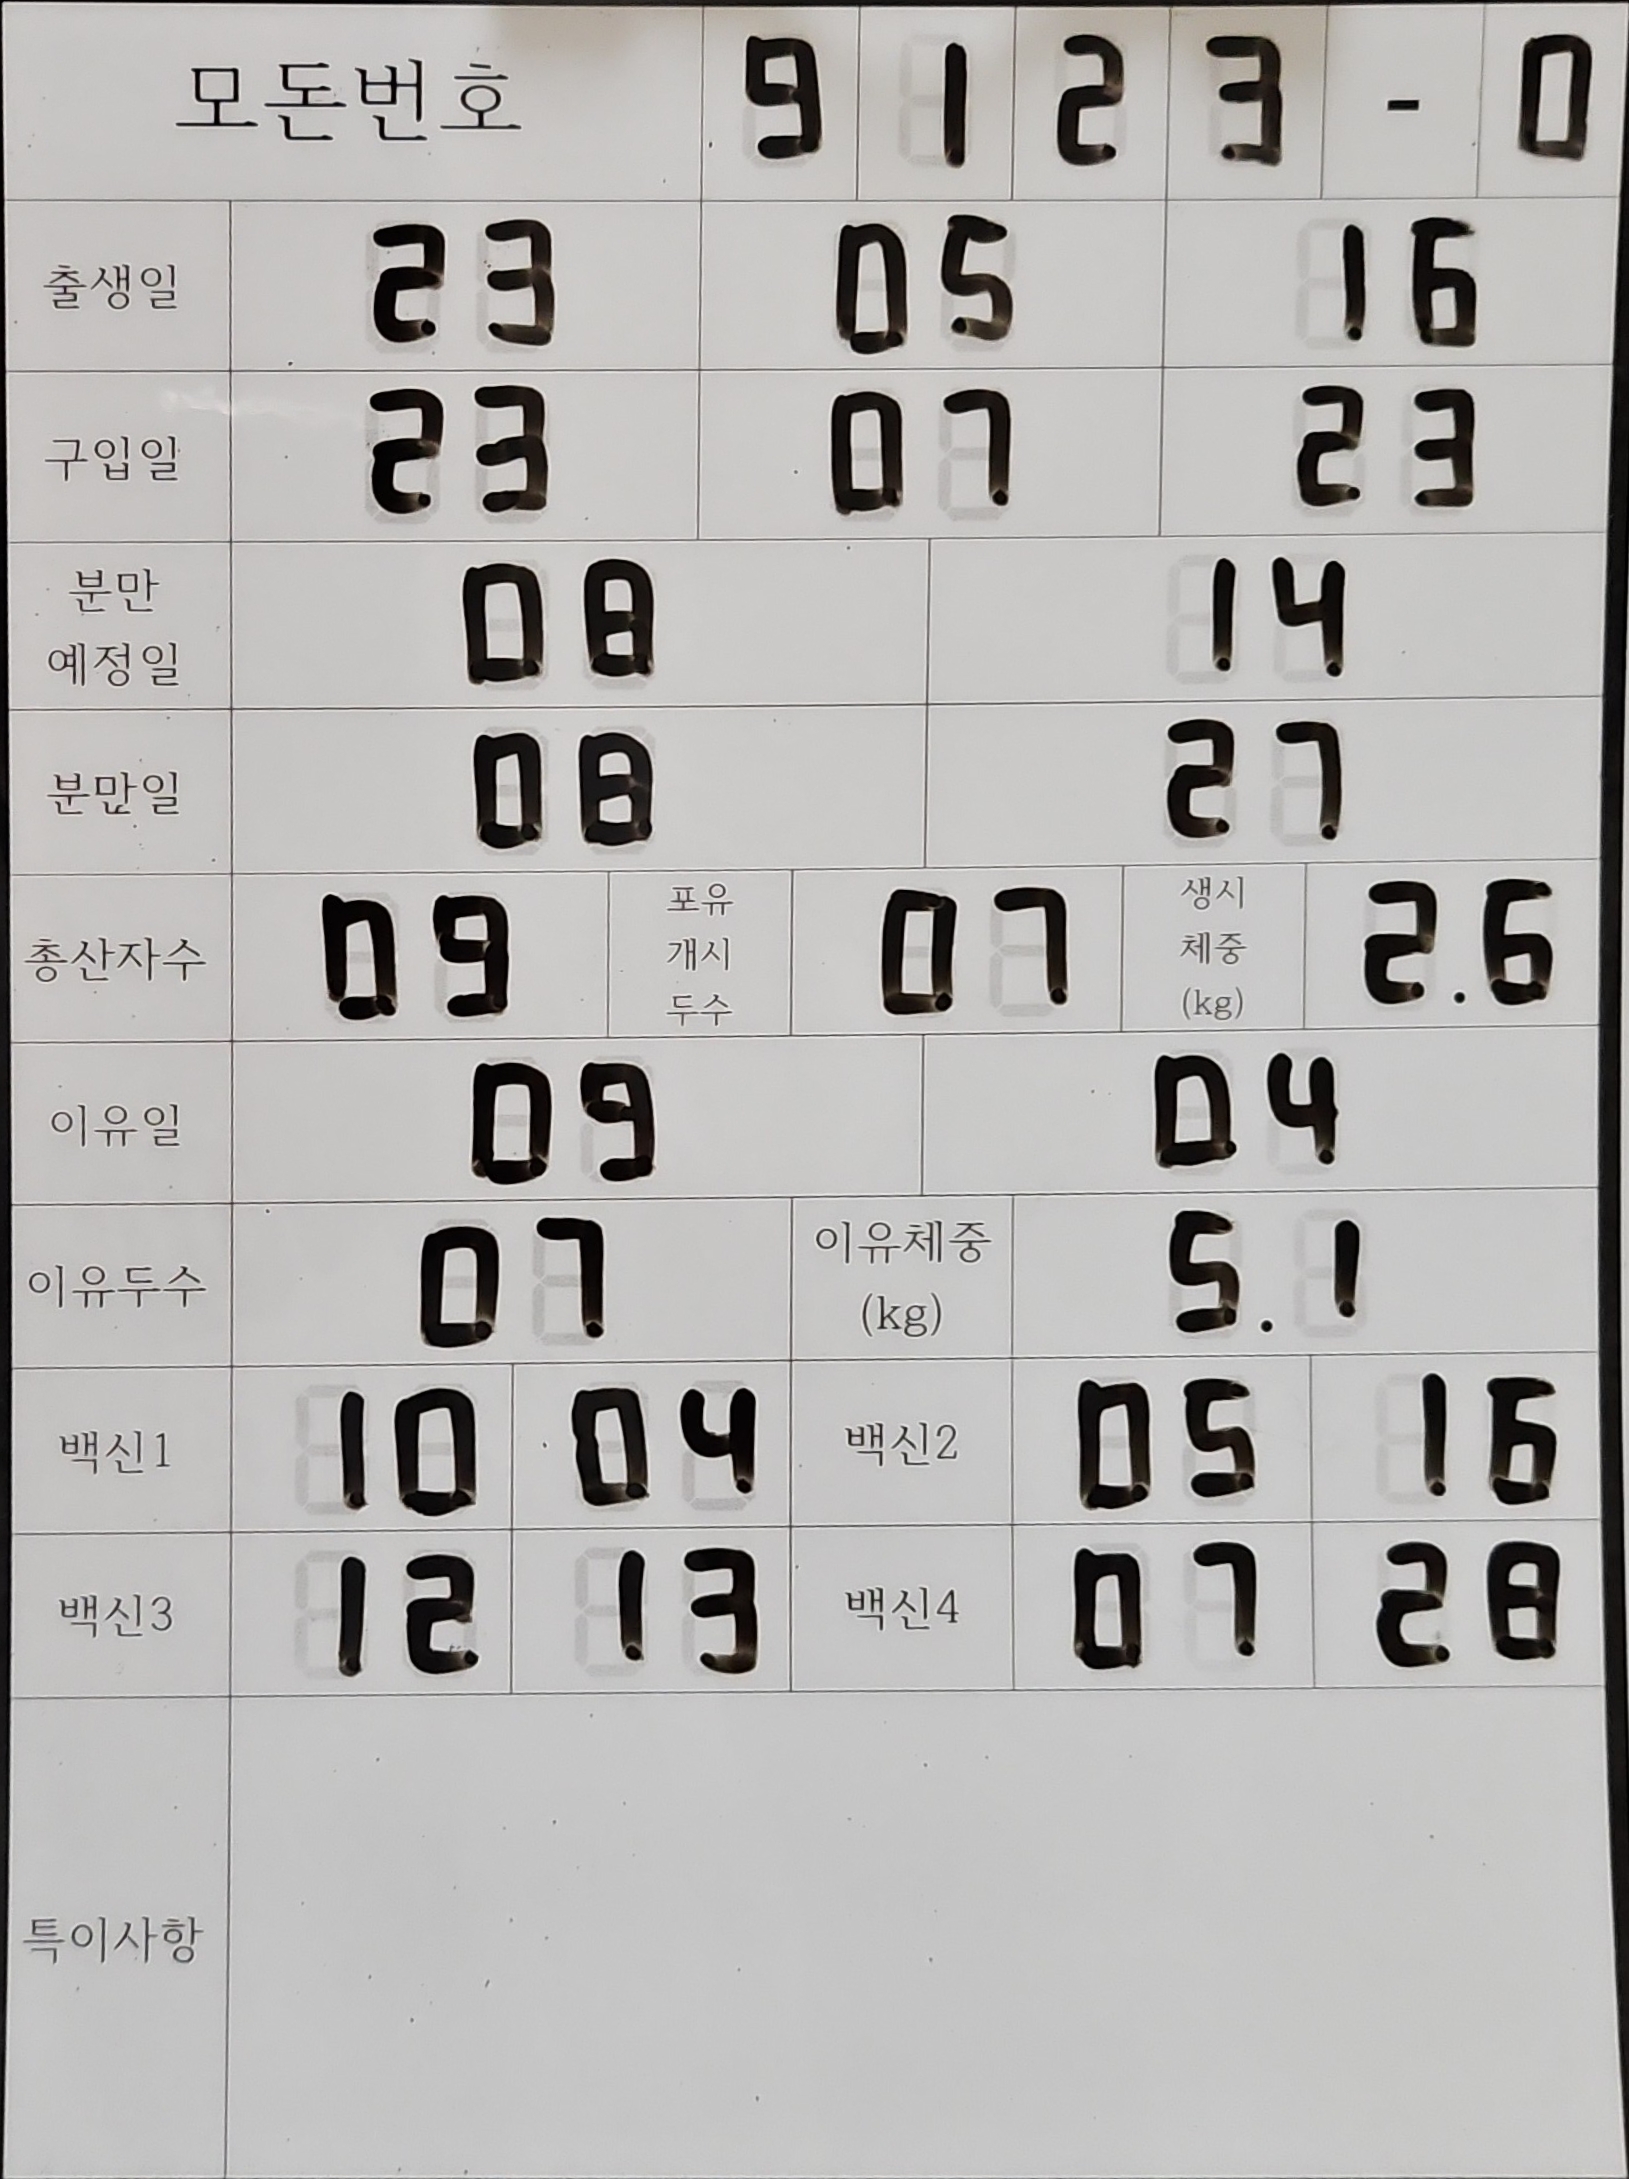 모돈번호 9 1 2 3 - 0
출생일 23 05 16
구입일 23 07 23
분만
예정일 08 14
분만일 08 27
총산자수 09 포유
개시
두수 07 생시
체중
(kg) 2.6
이유일 09 04
이유두수 07 이유체중
(kg) 5.1
백신1 10 04 백신2 05 16
백신3 12 13 백신4 07 28
특이사항